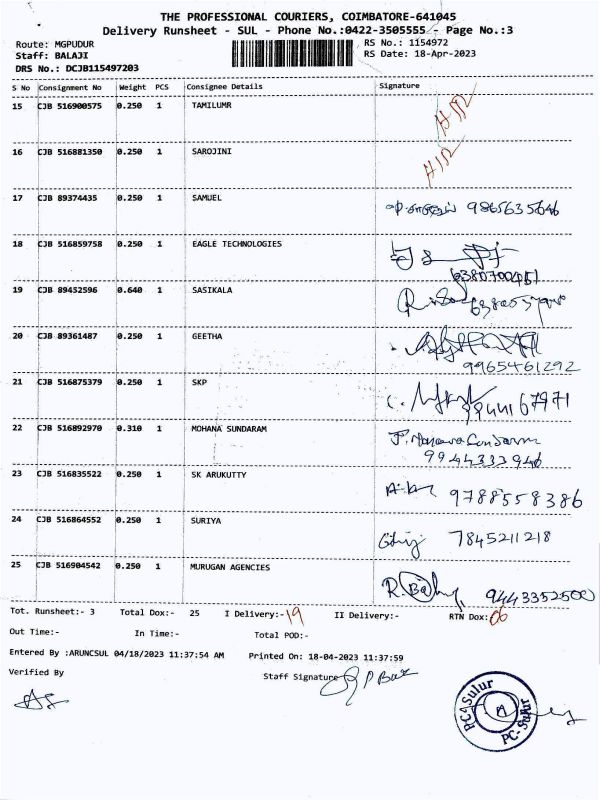 THE PROFESSIONAL COURIERS, COIMBATORE-641045
Delivery Runsheet - SUL - Phone No.:0422-3505555 - Page No.:3
Route: MGPUDUR RS No.: 1154972
Staff: BALAJI RS Date: 18-Apr-2023
DRS No.: DCJB115497203
S No Consignment No Weight PCS Consignee Details Signature
15 CJB 516900575 0.250 1 TAMILUMR
16 CJB 516881350 0.250 1 SAROJINI
17 CJB 89374435 0.250 1 SAMUEL 9865635646
18 CJB 516859758 0.250 1 EAGLE TECHNOLOGIES
6380700451
19 CJB 89452596 0.640 1 SASIKALA
20 CJB 89361487 0.250 1 GEETHA
9965461292
21 CJB 516875379 0.250 1 SKP
22 CJB 516892970 0.310 1 MOHANA SUNDARAM
9944333946
23 CJB 516835522 0.250 1 SK ARUKUTTY 9788558386
24 CJB 516864552 0.250 1 SURIYA 7845211218
25 CJB 516904542 0.250 1 MURUGAN AGENCIES
9443352500
Tot. Runsheet:- 3 Total Dox:- 25 I Delivery:- 19 II Delivery:- RTN Dox: 06
Out Time:- In Time:- Total POD:-
Entered By :ARUNCSUL 04/18/2023 11:37:54 AM Printed On: 18-04-2023 11:37:59
Verified By Staff Signature
PC-Sulur
PC-Sulur